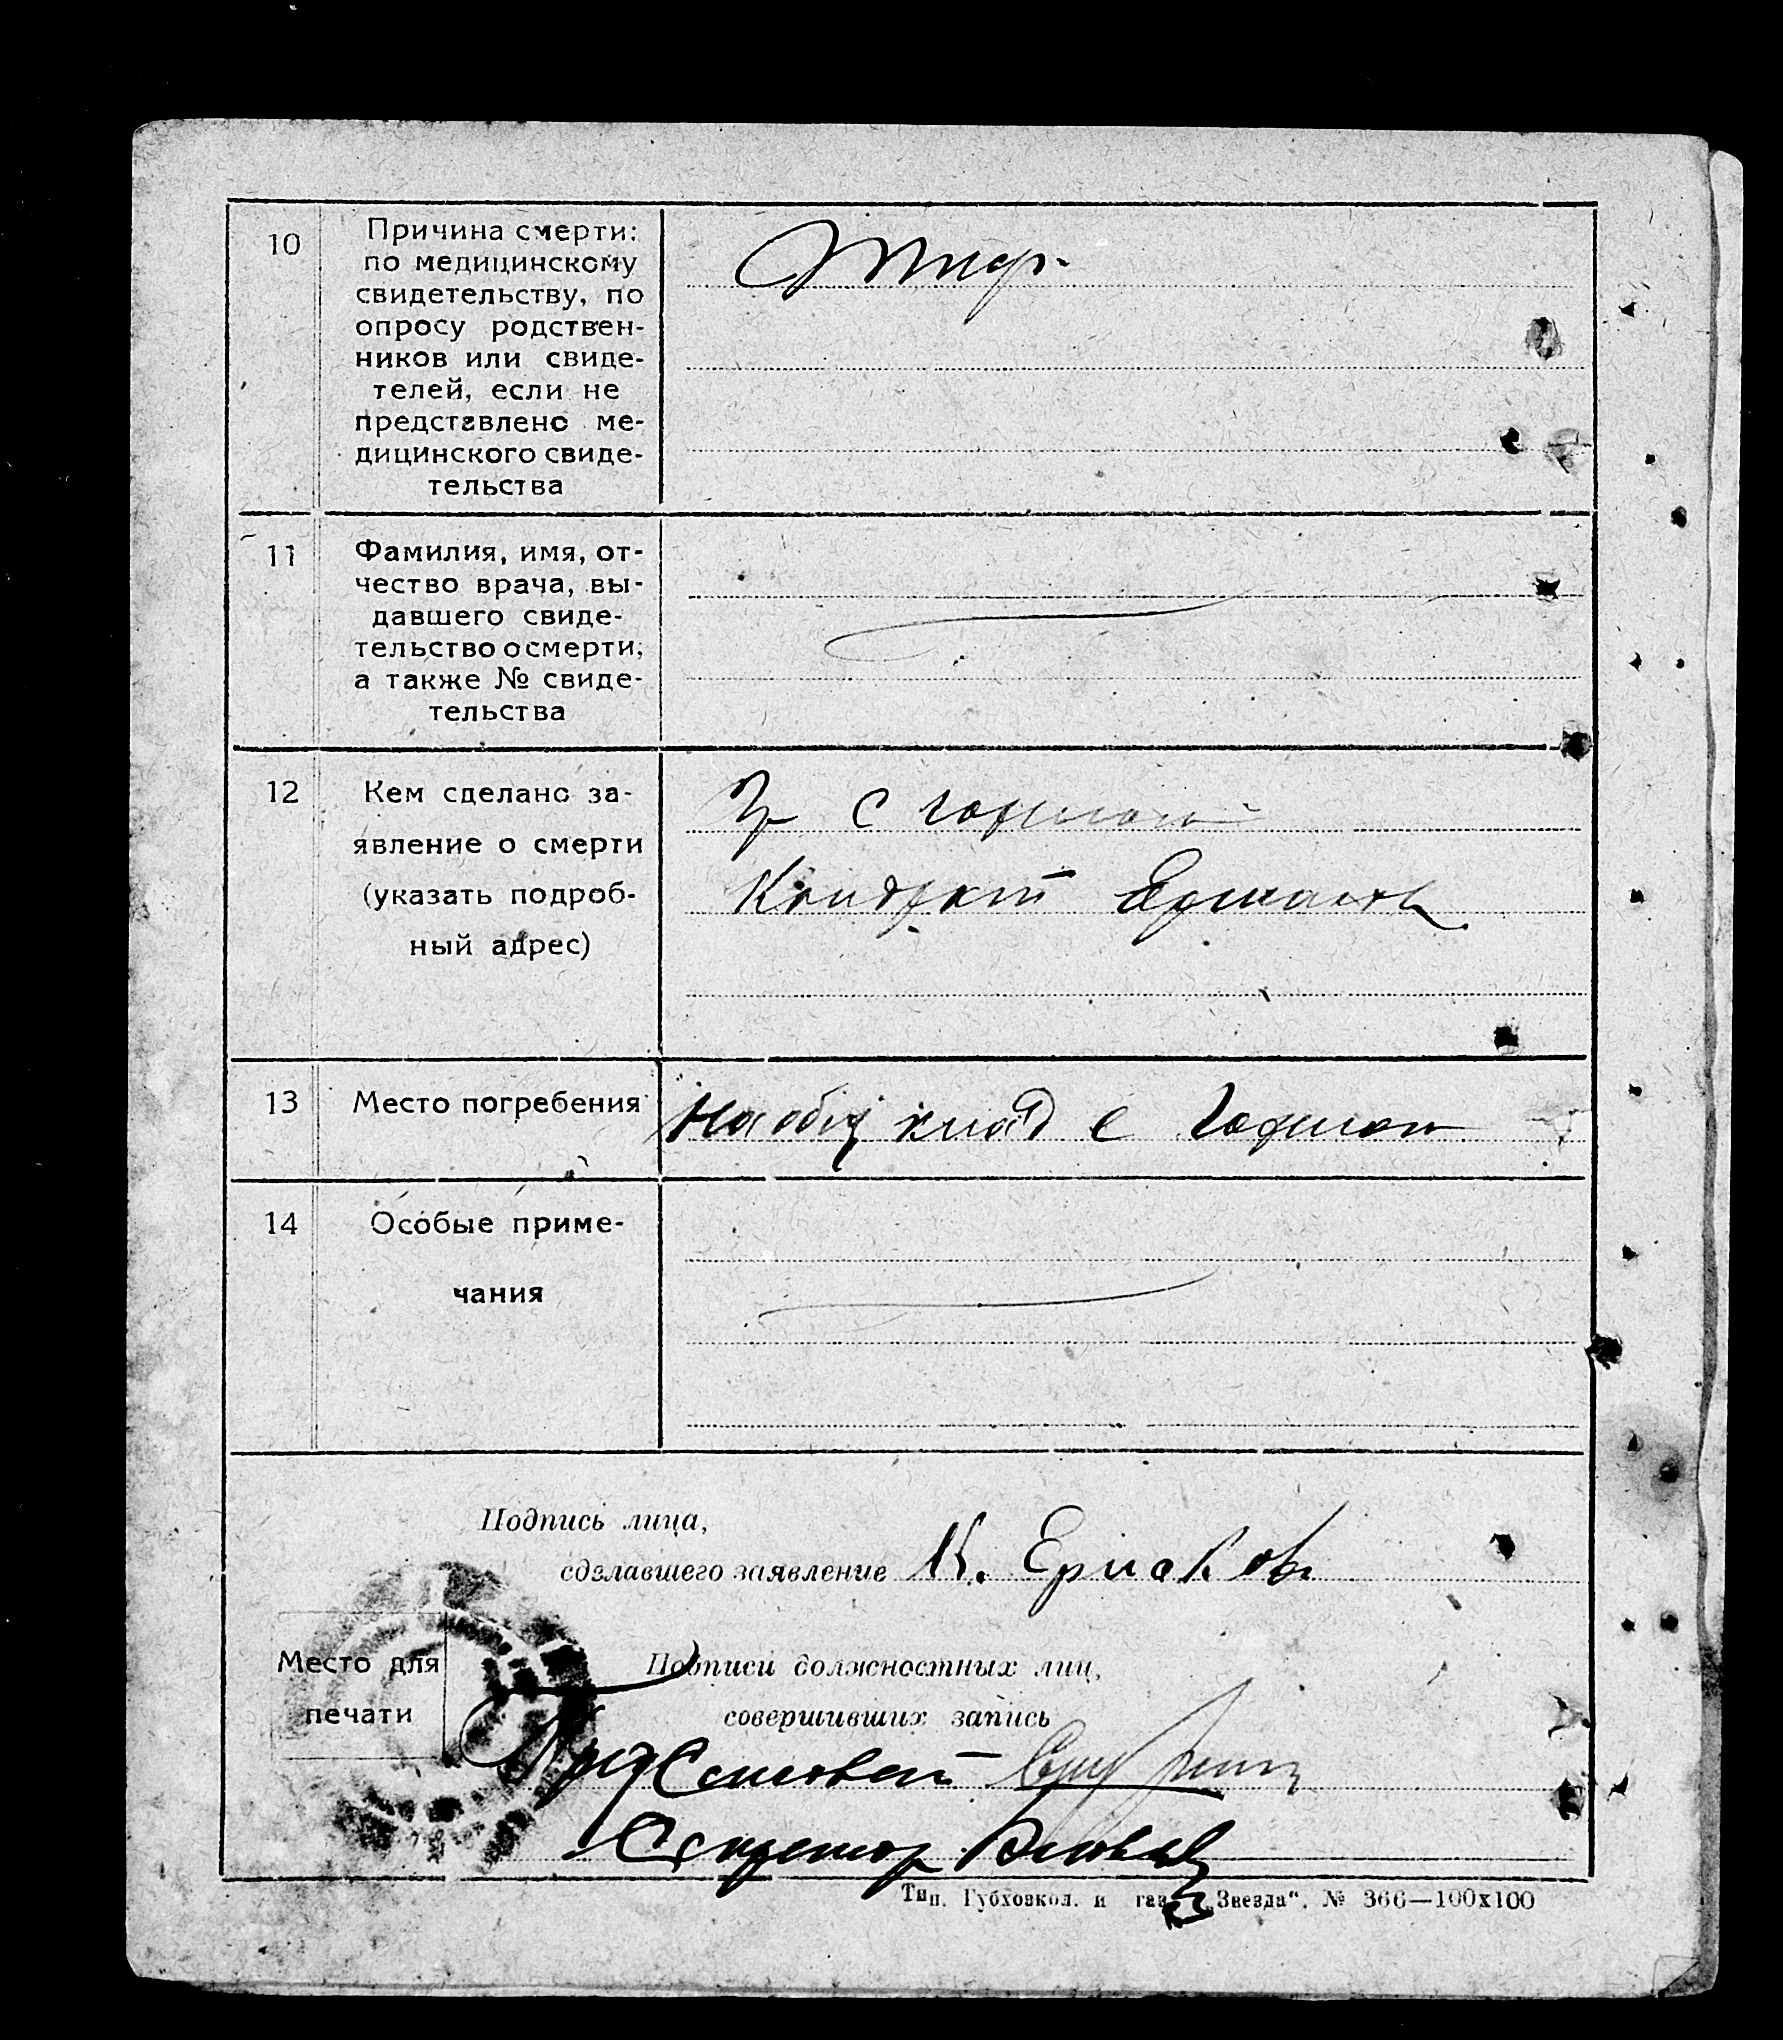 10
Причина смерти:
по медицинскому
свидетельству, по
опросу родствен-
ников или свиде-
телей, если не
представлено ме-
дицинского свиде-
тельства
Тиф
11
Фамилия, имя, от-
чество врача, вы-
давшего свиде-
тельство о смерти,
а также № свиде-
тельства
12
Кем сделано за-
явление о смерти
(указать подроб-
ный адрес)
Гр с
Кондрат Ермаков
13
Место погребения
На общ клад с
14
Особые приме-
чания
Подпись лица,
сделавшего заявление К. Ермаков
Место для
печати
Подписи должностных лиц,
совершивших запись
Пред Сельсовет
Секретар
Тип. Губховкол. и газ. „Звезда“. № 366—100х100